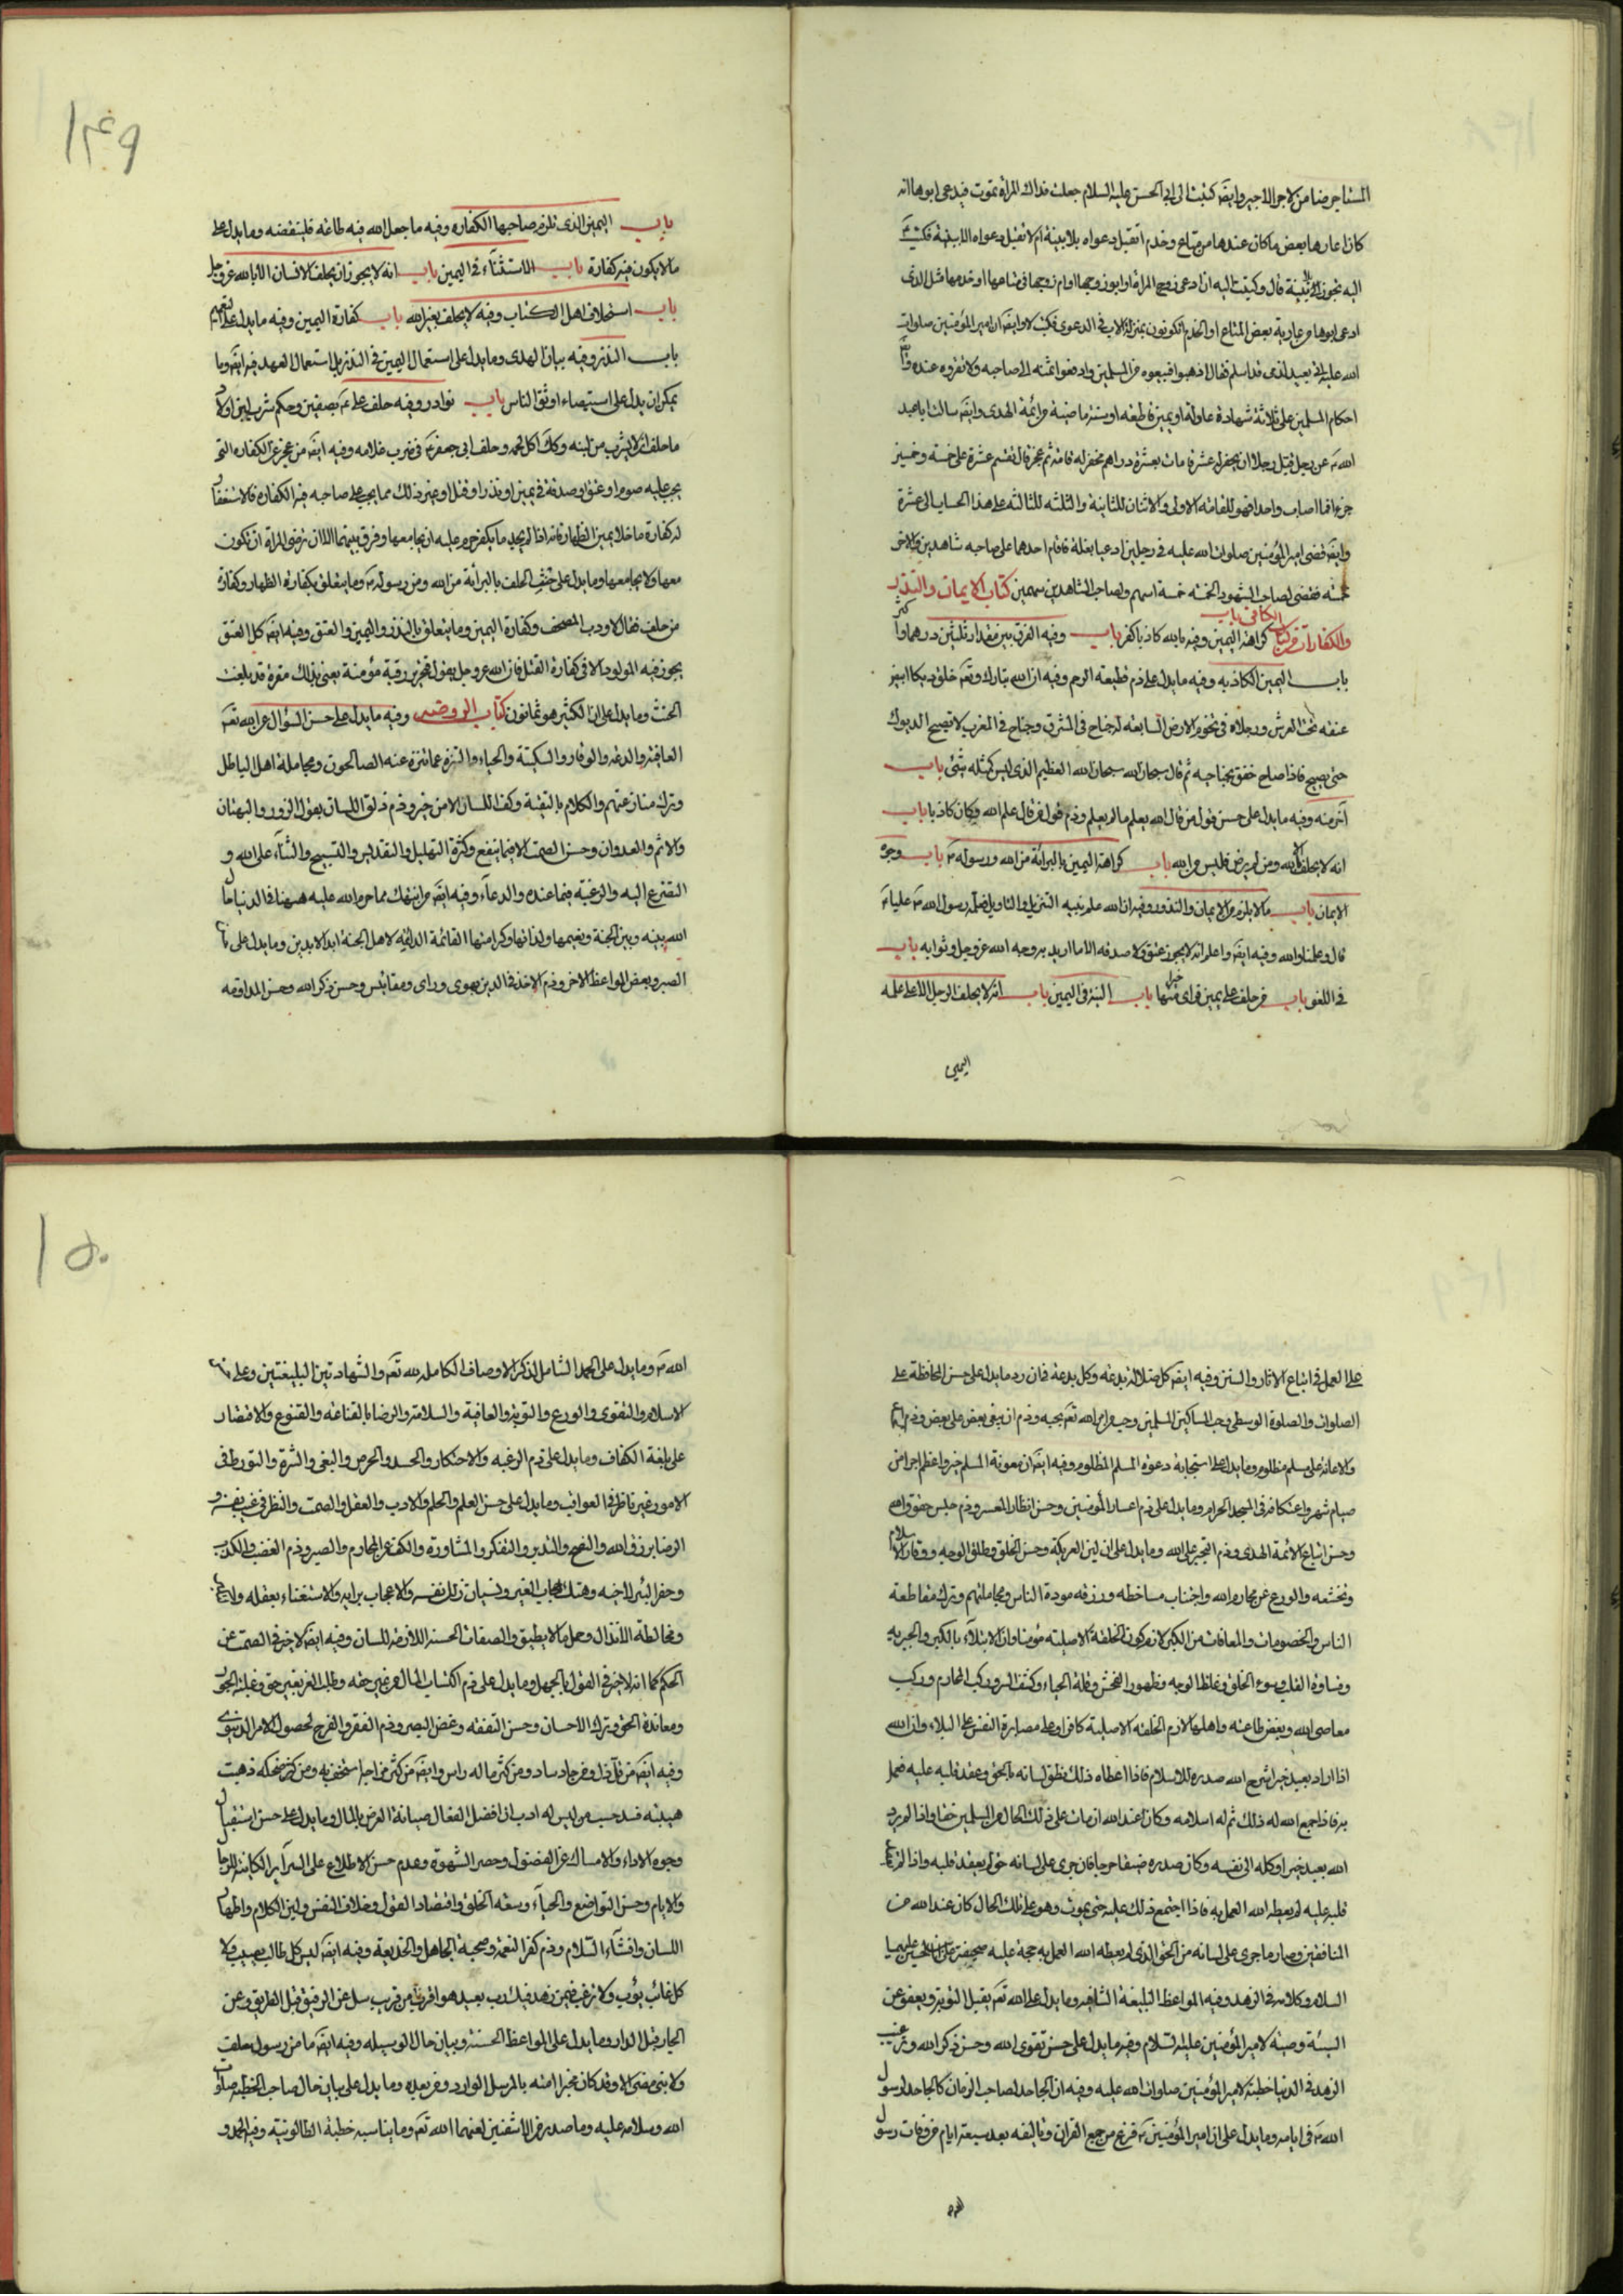 المستاجر ضامن لاجر الاجير وايضَ كتبت الى ابى الحسن عليه السلام جعلت فداك المراة تموت فيدعى ابوها انه
كان اعارها بعض ما كان عندها من متاع وخدم اتقبل دعواه بلا بينة ام لا تقبل دعواه الا ببينة فكتب
اليه يجوز بلا بينة قال وكتبت اليه ان ادعى زوج المراة او ابو زوجها او ام زوجها فى متاعها او خدمها مثل الذى
ادعى ابوها من عارية بعض المتاع او الخدم اتكونون بمنزلة الاب فى الدعوى فكتب لا وايضَ ان امير المؤمنين صلوات
الله عليه اتى بعبد لذمى قد اسلم فقال اذهبوا فبيعوه من المسلمين وادفعوا ثمنه الى صاحبه ولا تقروه عنده وان
احكام المسلمين على ثلاثة شهادة عادلة او يمين قاطعة او سنة ماضية من ائمة الهدى وايضَ سالت ابا عبد
الله عن رجل قبل رجلا ان يحفر له عشر قامات بعشرة دراهم فحفر له قامة ثم عجز قال تقسم عشرة على خمسة وخمسين
جزءا فما اصاب واحدا فهو للقامة الاولى والاثنان للثانية والثلثه للثالثه على هذا الحساب الى عشرة
وايضَ قضى امير المؤمنين صلوات الله عليه فى رجلين ادعيا بغلة فاقام احدهما على صاحبه شاهدين والاخر
خمسة فقضى لصاحب الشهود الخمسة خمسة اسهم ولصاحب الشاهدين سهمين كتاب الايمان والنذر
والكفارات من كتاب الكافى باب كراهة اليمين وفيه بالله كاذبا كفر باب وفيه الفرق بين مقدار ثلثين درهما واكثر
باب اليمين الكاذبه وفيه ما يدل على ذم قطيعة الرحم وفيه ان الله تبارك وتعَ خلق ديكا ابيض
عنقه تحت العرش ورجلاه فى تخوم الارض السابعه له جناح فى المشرق وجناح فى المغرب لا تصيح الديوك
حتى يصيح فاذا صاح خفق بجناحيه ثم قال سبحان الله سبحان الله العظيم الذى ليس كمثله شئ باب
آخر منه وفيه ما يدل على حسن قول من قال الله يعلم ما لم يعلم وذم قول من قال علم الله وكان كاذبا باب
انه لا يحلف الا بالله ومن لم يرض فليس من الله باب كراهة اليمين بالبرائة من الله ورسوله باب وجوه
الايمان باب ما لا يلزم من الايمان والنذور وفيه ان الله علم نبيه التنزيل والتاويل فعلمه رسول الله عليا
قال وعلمنا والله وفيه ايضَ واعلم انه لا يجوز عتق ولا صدقه الا ما اريد به وجه الله عز وجل وثوابه باب
فى اللغو باب من حلف على يمين فراى خيرا منها باب النية فى اليمين باب انه لا يحلف الرجل الا على علمه
اليمين
١٤٩
باب اليمين الذى تلزم صاحبها الكفاره وفيه ما جعل الله فيه طاعة فليقضه وما يدل على
ما لا يكون فيه كفارة باب الاستثنآء فى اليمين باب انه لا يجوز ان يحلف الانسان الا بالله عز وجل
باب استحلاف اهل الكتاب وفيه لا يحلف بغير الله باب كفارة اليمين وفيه ما يدل على
باب النذر وفيه بيان الهدى وما يدل على استعمال اليمين فى النذر بل استعمال العهد فيه ايضَ وما
يمكن ان يدل على استيصاء اوثق الناس باب نوادر وفيه حلف على بصفين وحكم شرب لبن اولاد
ما حلف ان لا يشرب من لبنه وكك اكل لحمه وحلف ابى جعفر فى ضرب غلامه وفيه ايضَ من عجز عن الكفاره التى
يجب عليه صوم او عتق او صدقة فى يمين او نذر او قتل او غير ذلك مما يجب على صاحبه فيه الكفاره فالاستغفار
له كفارة ما خلا يمين الظهار فانه اذا لم يجد ما يكفر حرم عليه ان يجامعها وفرق بينهما الا ان ترضى المراة ان تكون
معها ولا يجامعها وما يدل على حنث الحلف بالبرائة من الله ومن رسوله وما يتعلق بكفارة الظهار وكفارة
من حلف فقال لا ورب المصحف وكفارة اليمين وما يتعلق بالنذر واليمين والعتق وفيه ايضَ كل العتق
يجوز فيه المولود الا فى كفارة القتل فان الله عز وجل يقول فتحرير رقبة مؤمنة يعنى بذلك مقرة قد بلغت
الحنث وما يدل على ان الكثير هو ثمانون كتاب الروضه وفيه ما يدل على حسن السؤال عن الله تعَ
العافية والدعة والوقار والسكينة والحياء والتنزه عما تنزه عنه الصالحون ومجاملة اهل الباطل
وترك منازعتهم والكلام بالتقية وكف اللسان الا من خير وذم ذلق اللسان بقول الزور والبهتان
والاثم والعدوان وحسن الصمت الا فيما ينفع وكثرة التهليل والتقديس والتسبيح والثنآء على الله و
التضرع اليه والرغبة فيما عنده والدعآء وفيه ايضَ من انتهك مما حرم الله عليه ههنا فى الدنيا حال
الله بينه وبين الجنة ونعيمها ولذاتها وكرامتها القائمة الدائمة لاهل الجنة ابد الابدين وما يدل على
الصبر وبعض المواعظ الاخر وذم الاخذ فى الدين بهوى وراى ومقائيس وحسن ذكر الله وحسن المداومه
على العمل فى اتباع الاثار والسنن وفيه ايضَ كل ضلالة بدعة وكل بدعة فان رد ما يدل على حسن المحافظة على
الصلوات والصلوة الوسطى وحب المساكين المسلمين وحب من امر الله تعَ بحبه وذم ان يبغى بعض على بعض وذم
والاعانة على مسلم مظلوم وما يدل على استجابة دعوة المسلم المظلوم وفيه ايضَ ان معونة المسلم خير واعظم اجرا من
صيام شهر واعتكافه فى المسجد الحرام وما يدل على ذم اعسار المؤمنين وحسن انظار المعسر وذم حبس حقوق الله
وحسن اتباع الائمة الهدى وذم التجبر على الله وما يدل على ان لين العريكة وحسن الخلق وطلق الوجه ووقار الاسلام
وتخشعه والورع عن محارم الله واجتناب مساخطه ورزقه مودة الناس ومجاملتهم وترك مقاطعة
الناس والخصومات والمعافات من الكبر لازم كون الخلقة الاصلية مؤمنا وان الابتلآء بالكبر والجبرية
وقساوة القلب وسوء الخلق وغلظ الوجه وظهور الفحش وقلة الحياء وكشف الستر وركب المحارم وركب
معاصى الله وبغض طاعته واهلها لازم الخلقة الاصلية كافرا وعلى مصابرة النفس على البلاء وان الله
اذا اراد بعبد خيرا شرح الله صدره للاسلام فاذا اعطاه ذلك نطق لسانه بالحق وعقد قلبه عليه فعمل
به فاذا جمع الله له ذلك تم له اسلامه وكان عند الله ان مات على ذلك الحال من المسلمين حقا واذا لم يرد
الله بعبد خيرا وكله الى نفسه وكان صدره ضيقا حرجا فان جرى على لسانه حق لم يعقد قلبه واذا لم
قلبه عليه لم يعطه الله العمل به فاذا اجتمع ذلك عليه حتى يموت وهو على تلك الحال كان عند الله من
المنافقين وصار ما جرى على لسانه من الحق الذى لم يعطه الله العمل به حجة عليه صحيفة على بن الحسين عليهما
السلام وكلامه فى الزهد وفيه المواعظ البليغة الشافيه وما يدل على الله تعَ يقبل التوبة ويعفو عن
السيئة وصية لامير المؤمنين عليه السلام وفيه ما يدل على حسن تقوى الله وحسن ذكر الله وترغيب
الزهد فى الدنيا خطبة لامير المؤمنين صلوات الله عليه وفيه ان الجاحد لصاحب الزمان كالجاحد لرسول
الله فى ايامه وما يدل على ان امير المؤمنين فرغ من جمع القران وتاليفه بعد سبعة ايام من وفات رسول
١٥٠
الله وما يدل على الحمد الشامل لذكر الاوصاف الكامله لله تعَ والشهادتين البليغتين وعلى
الاسلام والتقوى والورع والتوبة والعافية والسلامة والرضا بالقناعة والقنوع والاقتصار
على بلغة الكفاف وما يدل على ذم الرغبة والاحتكار والحسد والحرص والبغى والشره والتورط فى
الامور غير ناظر فى العواقب وما يدل على حسن العلم والحلم والادب والعقل والصمت والنظر فى عيب نفسه و
الرضا برزق الله والنصح والتدبر والتفكر والمشاورة والكف عن المحارم والصبر وذم الغضب والكذب
وحفر البئر لاخيه وهتك حجاب الغير ونسيان زلل نفسه والاعجاب برايه والاستغناء بعقله
ومخالطة الانذال وحمل ما لا يطيق والصفات الحسنه اللازمة للسان وفيه ايضَ لا خير فى الصمت عن
الحكم كما انه لا خير فى القول بالجهل وما يدل على ذم اكتساب المال من غير حقه وطلب العز بغير حق وغلبة الجور
ومعاندة الحق وترك الاحسان وحسن التفقه وغض البصر وذم الفقر والفرح لحصول الامر الدنيوى
وفيه ايضَ من نال ذل ومن جاد ساد ومن كثر ماله راس وايضَ من كثر مزاحه استخف به ومن كثر ضحكه ذهبت
هيبته فسد حسب من ليس له ادب ان افضل الفعال صيانة العرض بالمال وما يدل على حسن استقبال
وجوه الاراء والامساك عن الفضول وحصر الشهوة وعدم حسن الاطلاع على السرآير الكامنة للرجال
والايام وحسن التواضع والحيآء وسعة الخلق واقتصاد القول وخلاف النفس ولين الكلام واظهار
اللسان وافشآء السلام وذم كفر النعمة وصحبة الجاهل والخديعة وفيه ايضَ ليس كل طالب يصيب ولا
كل غائب يؤب ولا ترغب فيمن زهد فيك رب بعيد هو اقرب من قريب سل عن الرفيق قبل الطريق وعن
الجار قبل الدار وما يدل على المواعظ الحسنة وبيان حال الوسيله وفيه ايضَ ما من رسول سلف
ولا نبى مضى الا وقد كان مخبرا امته بالمرسل الوارد من بعده وما يدل على بيان حال صاحب الخطبة صلوات
الله وسلامه عليه وما صدر من الاشقيين لعنهما الله تعَ وما يناسبه خطبة الطالوتية وفيه الحمد و